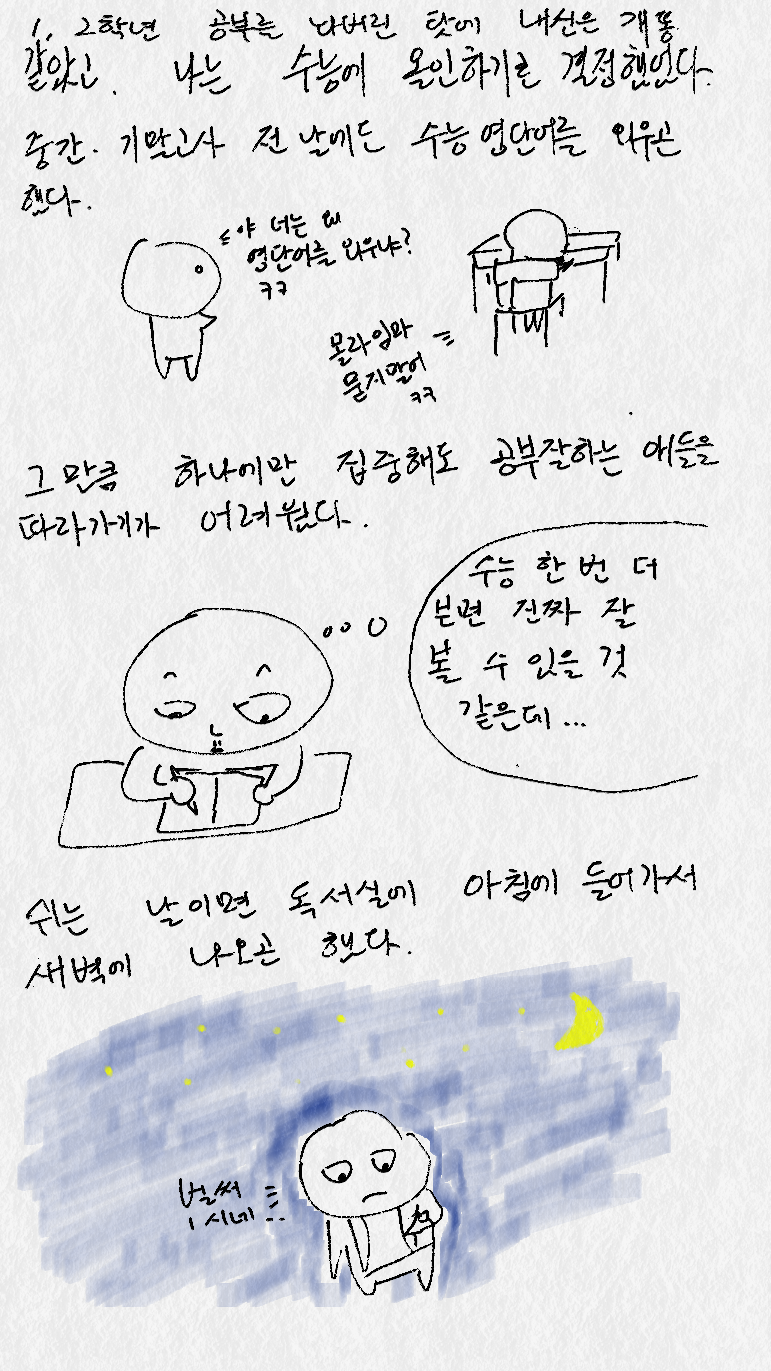 1, 2학년 공부를 놔버린 탓에 내신은 개똥
같았고. 나는 수능에 올인하기로 결정했었다.
중간. 기말고사 전 날에도 수능 영단어를 외우곤
했다.
야 너는 왜
영단어를 외우냐?
ㅋㅋ
몰라임마
묻지말어
ㅋㅋ
그만큼 하나에만 집중해도 공부잘하는 애들을
따라가기가 어려웠다.
수능 한 번 더
보면 진짜 잘
볼 수 있을 것
같은데...
쉬는 날이면 독서실에 아침에 들어가서
새벽에 나오곤 했다.
벌써
1시네